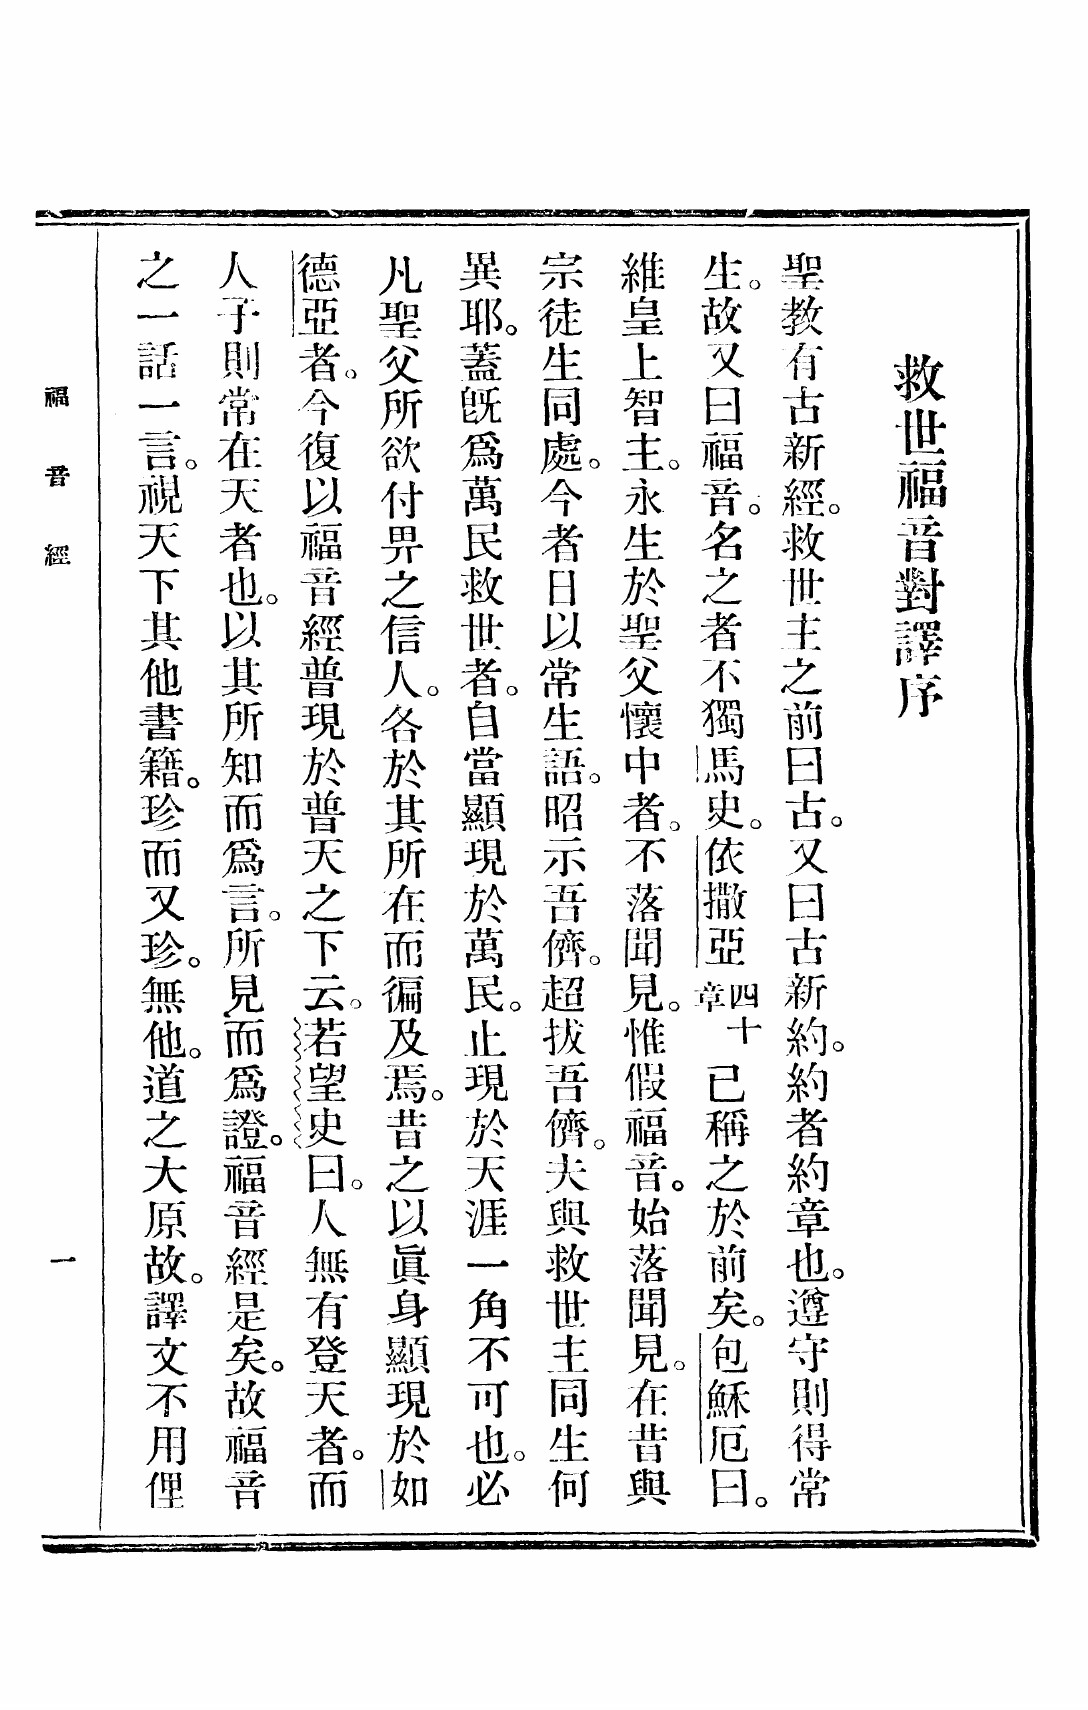 救世福音對譯序
聖教有古新經。救世主之前曰古。又曰古新約。約者約章也。遵守則得常
生。故又曰福音。名之者不獨馬史。依撒亞四十章已稱之於前矣。包穌厄曰。
維皇上智主。永生於聖父懷中者。不落聞見。惟假福音。始落聞見。在昔與
宗徒生同處。今者日以常生語。昭示吾儕。超拔吾儕。夫與救世主同生何
異耶。蓋旣爲萬民救世者。自當顯現於萬民。止現於天涯一角不可也。必
凡聖父所欲付畀之信人。各於其所在而徧及焉。昔之以眞身顯現於如
德亞者。今復以福音經普現於普天之下云。若望史曰。人無有登天者。而
人子則常在天者也。以其所知而爲言。所見而爲證。福音經是矣。故福音
之一話一言。視天下其他書籍。珍而又珍。無他。道之大原故。譯文不用俚
福音經
一